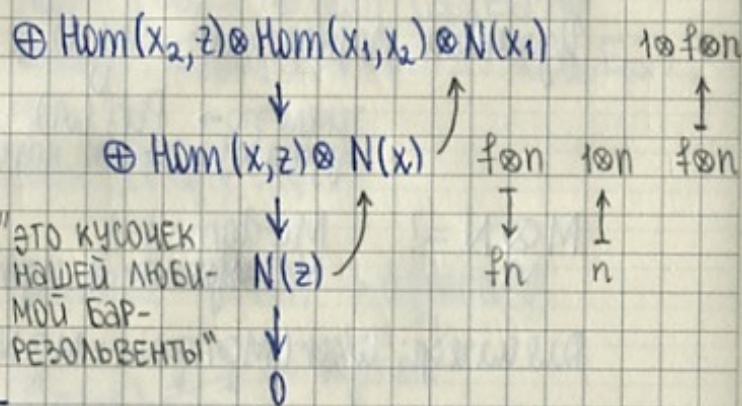 ⊕ Hom(x₂,z)⊗Hom(x₁,x₂)⊗N(x₁) 1⊗f⊗n
↓ ↑
⊕ Hom(x,z)⊗N(x) f⊗n 1⊗n f⊗n
↓ ↓ ↑
"ЭТО КУСОЧЕК
НАШЕЙ ЛЮБИ- N(z) fn n
МОЙ БАР-
РЕЗОЛЬВЕНТЫ"
↓
0